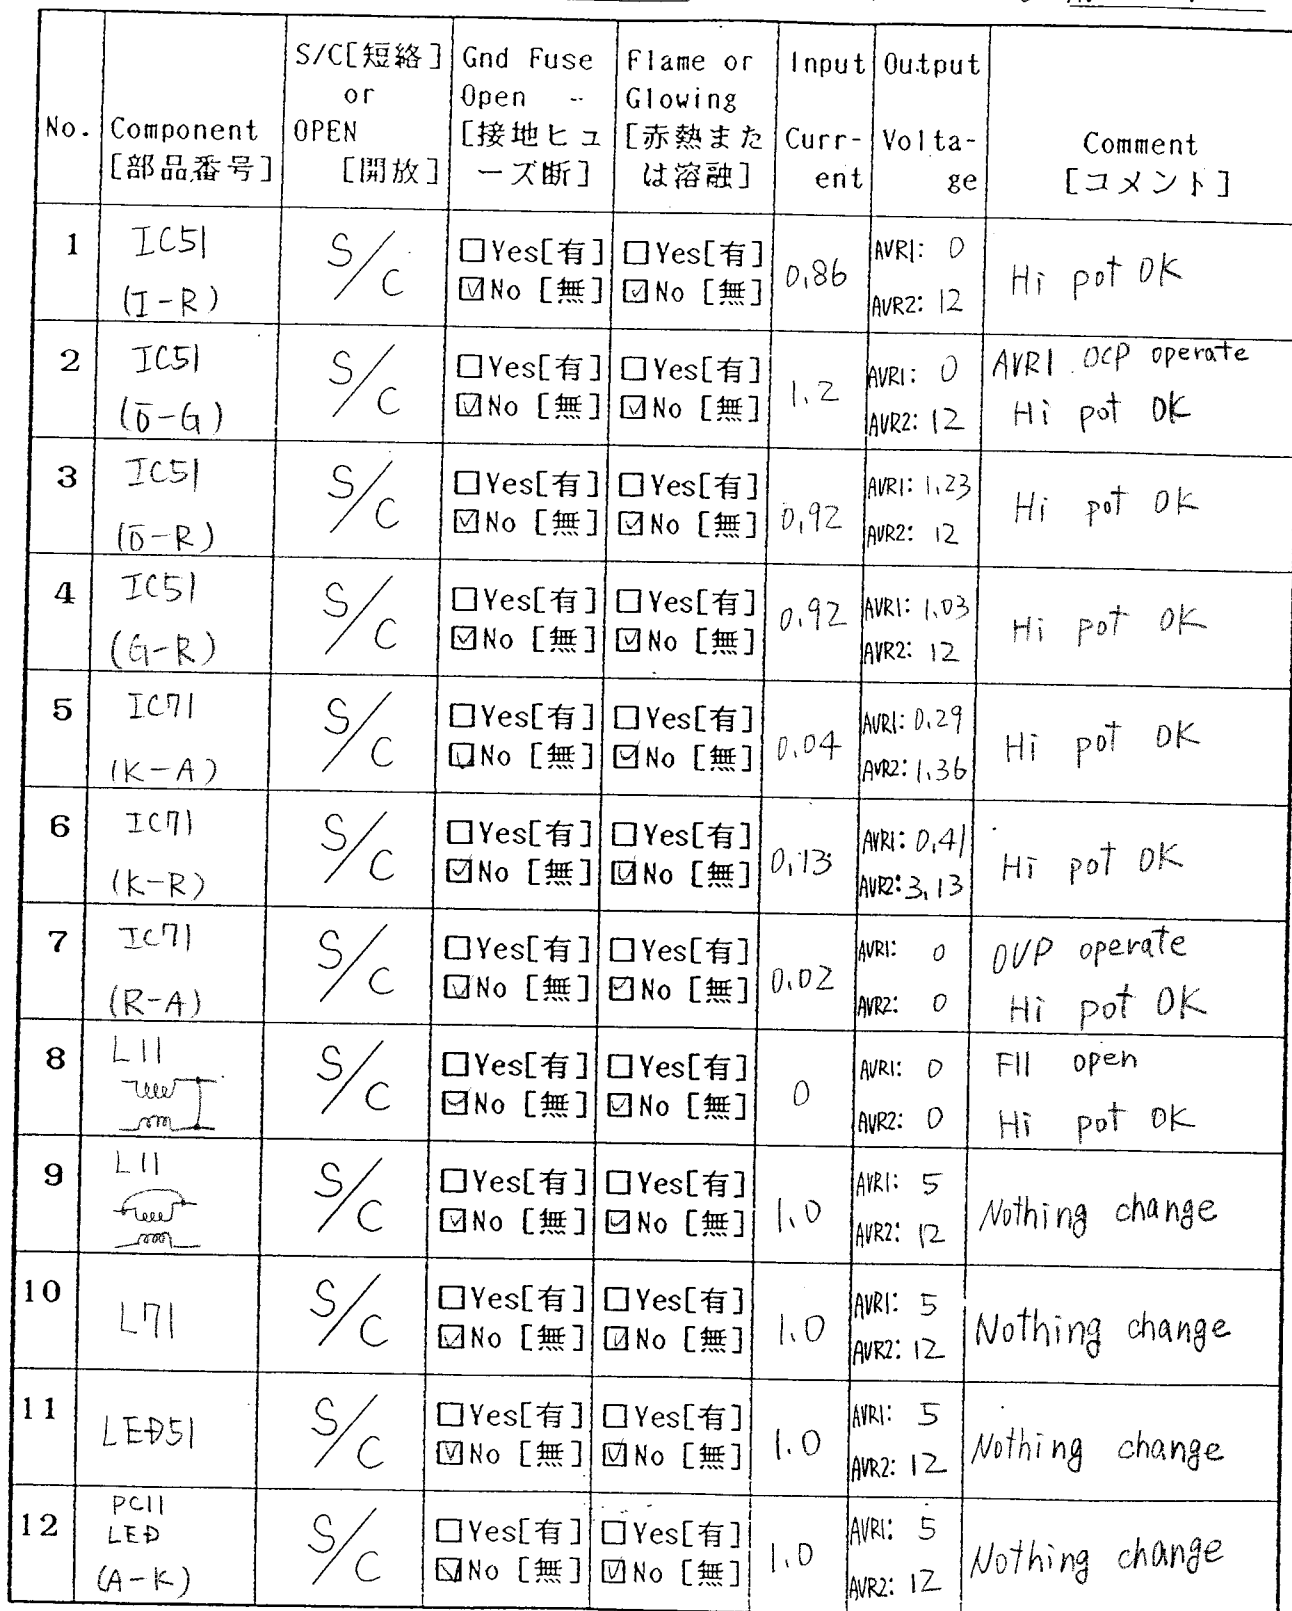 No. Component [部品番号] S/C[短絡] or OPEN [開放] Gnd Fuse Open [接地ヒューズ断] Flame or Glowing [赤熱または溶融] Input Curr-ent Output Volta-ge Comment [コメント]
1 IC51 (I-R) S/C □Yes[有] ☑No [無] □Yes[有] ☑No [無] 0.86 AVR1: 0 AVR2: 12 Hi pot OK
2 IC51 (O-G) S/C □Yes[有] ☑No [無] □Yes[有] ☑No [無] 1.2 AVR1: 0 AVR2: 12 AVR1 OCP operate Hi pot OK
3 IC51 (O-R) S/C □Yes[有] ☑No [無] □Yes[有] ☑No [無] 0.92 AVR1: 1.23 AVR2: 12 Hi pot OK
4 IC51 (G-R) S/C □Yes[有] ☑No [無] □Yes[有] ☑No [無] 0.92 AVR1: 1.03 AVR2: 12 Hi pot OK
5 IC71 (K-A) S/C □Yes[有] ☑No [無] □Yes[有] ☑No [無] 0.04 AVR1: 0.29 AVR2: 1.36 Hi pot OK
6 IC71 (K-R) S/C □Yes[有] ☑No [無] □Yes[有] ☑No [無] 0.13 AVR1: 0.41 AVR2: 3.13 Hi pot OK
7 IC71 (R-A) S/C □Yes[有] ☑No [無] □Yes[有] ☑No [無] 0.02 AVR1: 0 AVR2: 0 OVP operate Hi pot OK
8 L11 S/C □Yes[有] ☑No [無] □Yes[有] ☑No [無] 0 AVR1: 0 AVR2: 0 F11 open Hi pot OK
9 L11 S/C □Yes[有] ☑No [無] □Yes[有] ☑No [無] 1.0 AVR1: 5 AVR2: 12 Nothing change
10 L71 S/C □Yes[有] ☑No [無] □Yes[有] ☑No [無] 1.0 AVR1: 5 AVR2: 12 Nothing change
11 LED51 S/C □Yes[有] ☑No [無] □Yes[有] ☑No [無] 1.0 AVR1: 5 AVR2: 12 Nothing change
12 PC11 LED (A-K) S/C □Yes[有] ☑No [無] □Yes[有] ☑No [無] 1.0 AVR1: 5 AVR2: 12 Nothing change